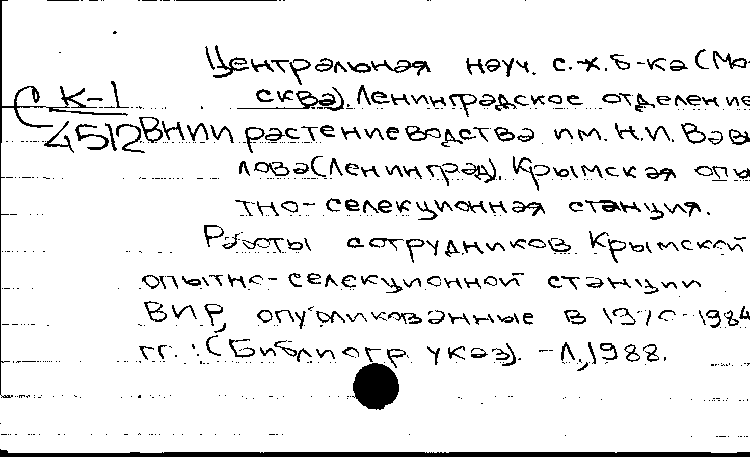 Центральная науч. с.-х. б-ка (Мо-
сква). Ленинградское отделение
С К-1
4512
ВНИИ растениеводства им. Н.И. Вави
лова (Ленинград). Крымская опы
тно-селекционная станция.
Работы сотрудников Крымской
опытно-селекционной станции
ВИР, опубликованные в 1970-1984
гг.: (Библиогр. указ). -Л., 1988.